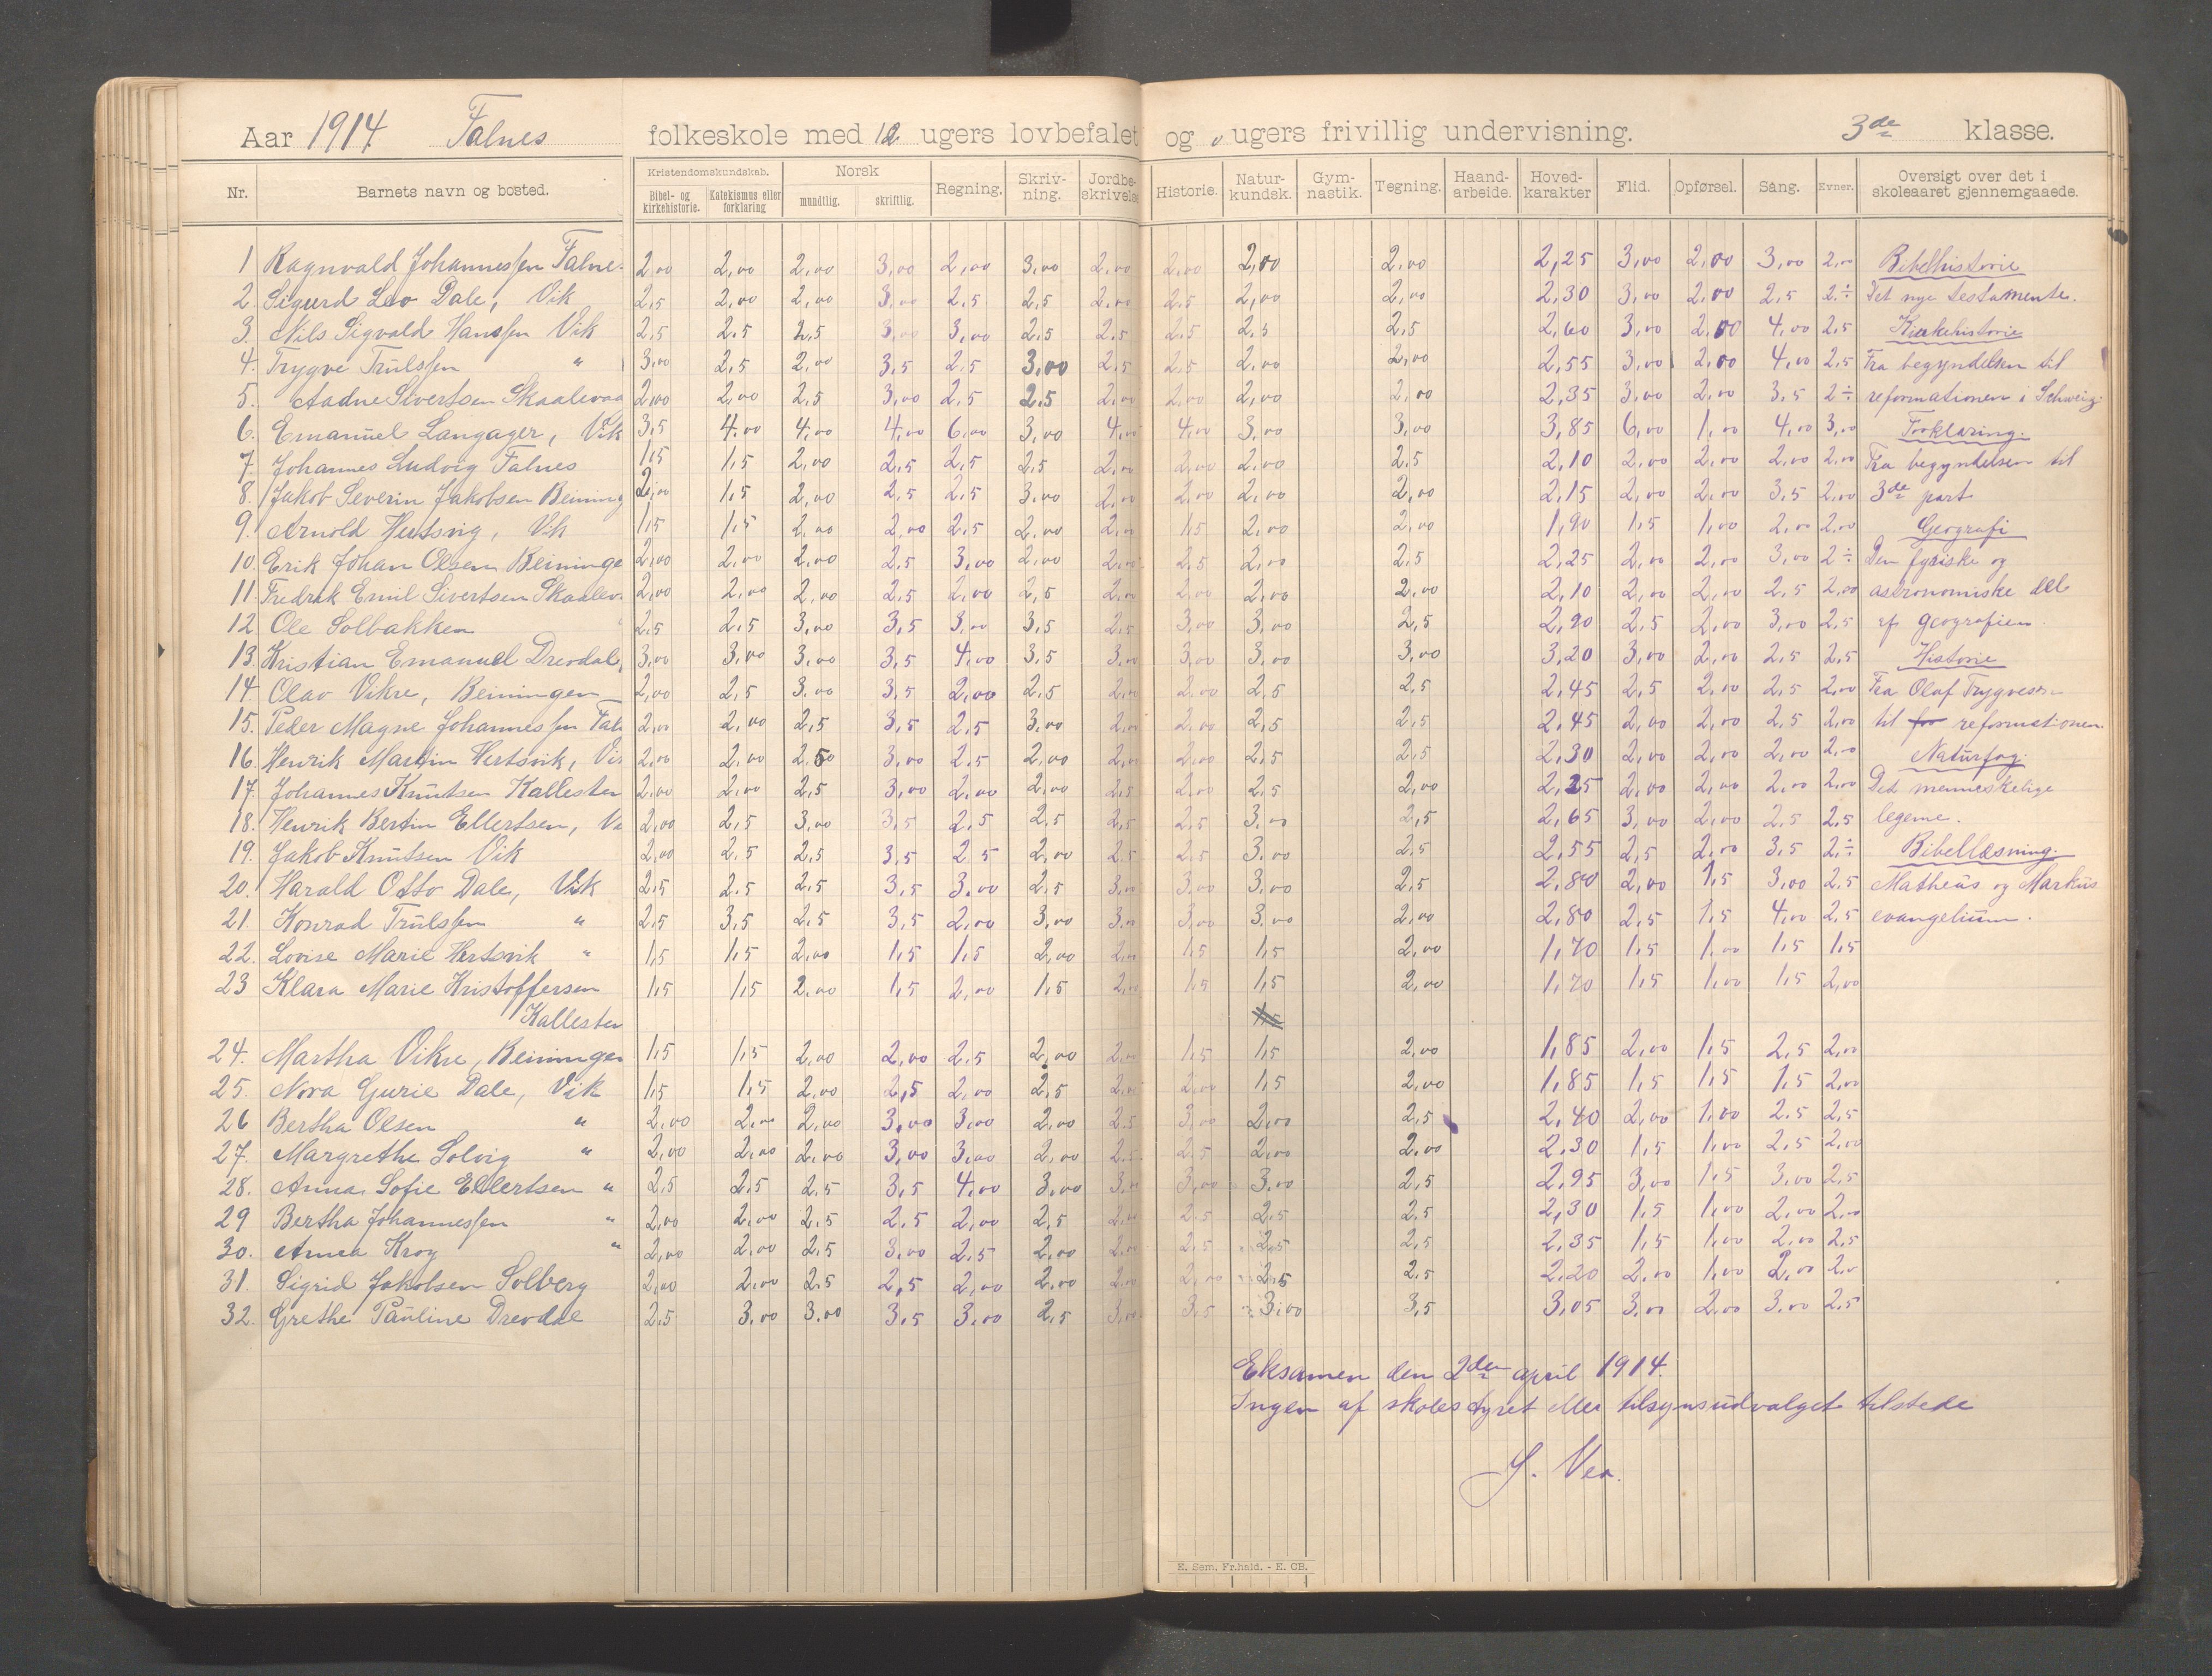 Aar 1914 Falnes folkeskole med 12 ugers lovbefalet og 0 ugers frivillig undervisning. 3de klasse.
Nr. Barnets navn og bosted. Kristendomskundskab. Bibel- og kirkehistorie. Katekismus eller forklaring Norsk mundtlig. skriftlig. Regning. Skriv-ning. Jordbe-skrivelse Historie. Natur-kundsk. Gym-nastik. Tegning. Haand-arbeide. Hoved-karakter Flid. Opførsel. Sang. Evner. Oversigt over det i skoleaaret gjennemgaaede.
1 Ragnvald Johannessen Falne 2,00 2,00 2,00 3,00 2,00 3,00 2,00 2,00 2,00 2,00 2,25 3,00 2,00 3,00 2,00 Bibelhistorie
2. Sigurd Leo Dale, Vik 2,5 2,00 2,00 3,00 2,5 2,5 2,00 2,5 2,00 2,00 2,30 3,00 2,00 2,5 2÷ Det nye testamente.
3. Nils Sigvald Hanssen Vik 2,5 2,5 2,5 3,00 3,00 2,5 2,5 2,5 2,5 2,5 2,60 3,00 2,00 4,00 2,5 Kirkehistorie
4. Trygve Trulssen " 3,00 2,5 2,00 3,5 2,5 3,00 2,5 2,5 2,00 2,00 2,55 3,00 2,00 4,00 2,5 Fra begyndelsen til
5. Aadne Sivertsen Skaalevaa 2,00 2,00 2,5 3,00 2,5 2,5 2,00 2,00 2,00 2,00 2,35 3,00 2,00 3,5 2÷ reformationen i Schweiz.
6. Emanuel Langager, Vik 3,5 4,00 4,00 4,00 6,00 3,00 4,00 4,00 3,00 3,00 3,85 6,00 1,00 4,00 3,00 Forklaring.
7. Johannes Ludvig Falnes 1,5 1,5 2,00 2,5 2,5 2,5 2,00 2,00 2,00 2,5 2,10 2,00 2,00 2,00 2,00 Fra begyndelsen til
8. Jakob Severin Jakobsen Beining 2,00 1,5 2,00 2,5 2,5 3,00 2,00 2,00 2,00 2,00 2,15 2,00 2,00 3,5 2,00 3de part
9. Arnold Hertsvig, Vik 1,5 1,5 2,00 2,00 2,5 2,00 2,00 1,5 2,00 2,00 1,90 1,5 1,00 2,00 2,00 Geografi
10. Erik Johan Olsen Beininge 2,00 2,00 2,00 2,5 3,00 2,00 2,00 2,5 2,00 2,5 2,25 2,00 2,00 3,00 2÷ Den fysiske og
11. Fredrik Emil Sivertsen Skaalev. 2,00 2,00 2,00 2,5 2,00 2,5 2,00 2,00 2,00 2,00 2,10 2,00 2,00 2,5 2,00 astronomiske del
12 Ole Solbakken 2,5 2,5 3,00 3,5 3,00 3,5 2,5 3,00 3,00 2,5 2,90 2,5 2,00 3,00 2,5 af geografien.
13. Kristian Emanuel Drevdal, 3,00 3,00 3,00 3,5 4,00 3,5 3,00 3,00 3,00 3,00 3,20 3,00 2,00 2,5 2,5 Historie
14. Olav Vikre, Beiningen 2,00 2,5 3,00 3,5 2,00 2,5 2,00 2,00 2,5 2,5 2,45 2,5 2,00 2,5 2,00 Fra Olaf Trygvesen
15. Peder Magne Johannessen Faln 2,00 2,00 2,5 3,5 2,5 3,00 2,00 2,00 2,5 2,5 2,45 2,00 2,00 2,5 2,00 til for reformationen.
16. Henrik Martin Hertsvik, Vi 2,00 2,00 2,50 3,00 2,5 2,00 2,00 2,00 2,5 2,5 2,30 2,00 2,00 2,00 2,00 Naturfag.
17. Johannes Knutsen Kallesten 2,00 2,00 2,5 3,00 2,00 2,00 2,5 2,00 2,5 2,00 2,25 2,00 2,00 2,00 2,00 Det menneskelige
18. Henrik Bertin Ellertsen, Vi 2,00 2,5 3,00 3,5 2,5 2,5 2,5 2,5 3,00 2,5 2,65 3,00 2,00 2,5 2,5 legeme.
19. Jakob Knutsen Vik 2,00 2,5 2,5 3,5 2,5 2,00 2,5 2,5 3,00 2,5 2,55 2,5 2,00 3,5 2÷ Bibellæsning.
20. Harald Otto Dale, Vik 2,5 2,5 2,5 3,5 3,00 2,5 3,00 3,00 3,00 2,5 2,80 2,00 1,5 3,00 2,5 Matheus og Markus
21. Konrad Trulssen " 2,5 3,5 2,5 3,5 2,00 3,00 3,00 3,00 3,00 2,00 2,80 2,5 1,5 4,00 2,5 evangelium.
22. Lovise Marie Hertsvik " 1,5 1,5 2,00 1,5 1,5 2,00 2,00 1,5 1,5 2,00 1,70 1,5 1,00 1,5 1,5
23 Klara Marie Kristoffersen 1,5 1,5 2,00 1,5 2,00 1,5 2,00 1,5 1,5 2,00 1,70 1,5 1,00 1,5 2,00
Kallesten
24. Martha Vikre, Beiningen 1,5 1,5 2,00 2,00 2,5 2,00 2,00 1,5 1,5 2,00 1,85 2,00 1,5 2,5 2,00
25. Nora Gurie Dale, Vik 1,5 1,5 2,00 2,5 2,00 2,5 2,00 2,00 1,5 2,00 1,85 1,5 1,5 1,5 2,00
26 Bertha Olsen " 2,00 2,00 2,00 3,00 3,00 2,00 2,5 3,00 2,00 2,5 2,40 2,00 1,00 2,5 2,5
27. Margrethe Solvig " 2,00 2,00 2,00 3,00 3,00 2,00 2,5 2,5 2,00 2,00 2,30 1,5 1,00 2,5 2,00
28. Anna Sofie Ellertsen " 2,5 2,5 2,5 3,5 4,00 3,00 3,00 3,00 3,00 2,5 2,95 3,00 1,5 3,00 2,5
29 Bertha Johannessen " 2,00 2,00 2,5 2,5 2,00 2,5 2,00 2,5 2,5 2,5 2,30 1,5 1,00 2,00 2,00
30. Anna Krog " 2,00 2,00 2,5 3,00 2,5 2,00 2,00 2,5 2,5 2,5 2,35 1,5 1,00 2,00 2,5
31. Sigrid Jakobsen Solberg 2,00 2,00 2,5 2,5 2,00 2,00 2,00 2,00 2,5 2,5 2,20 2,00 1,00 2,00 2,0
32. Grethe Pauline Drevdal 2,5 3,00 3,00 3,5 3,00 2,5 3,00 3,5 3,00 3,5 3,05 3,00 2,00 3,00 2,5
Eksamen den 2den april 1914.
Ingen af skolestyret eller tilsynsudvalget tilstede
S. Vea.
E. Sem, Fr.hald. - E. CB.